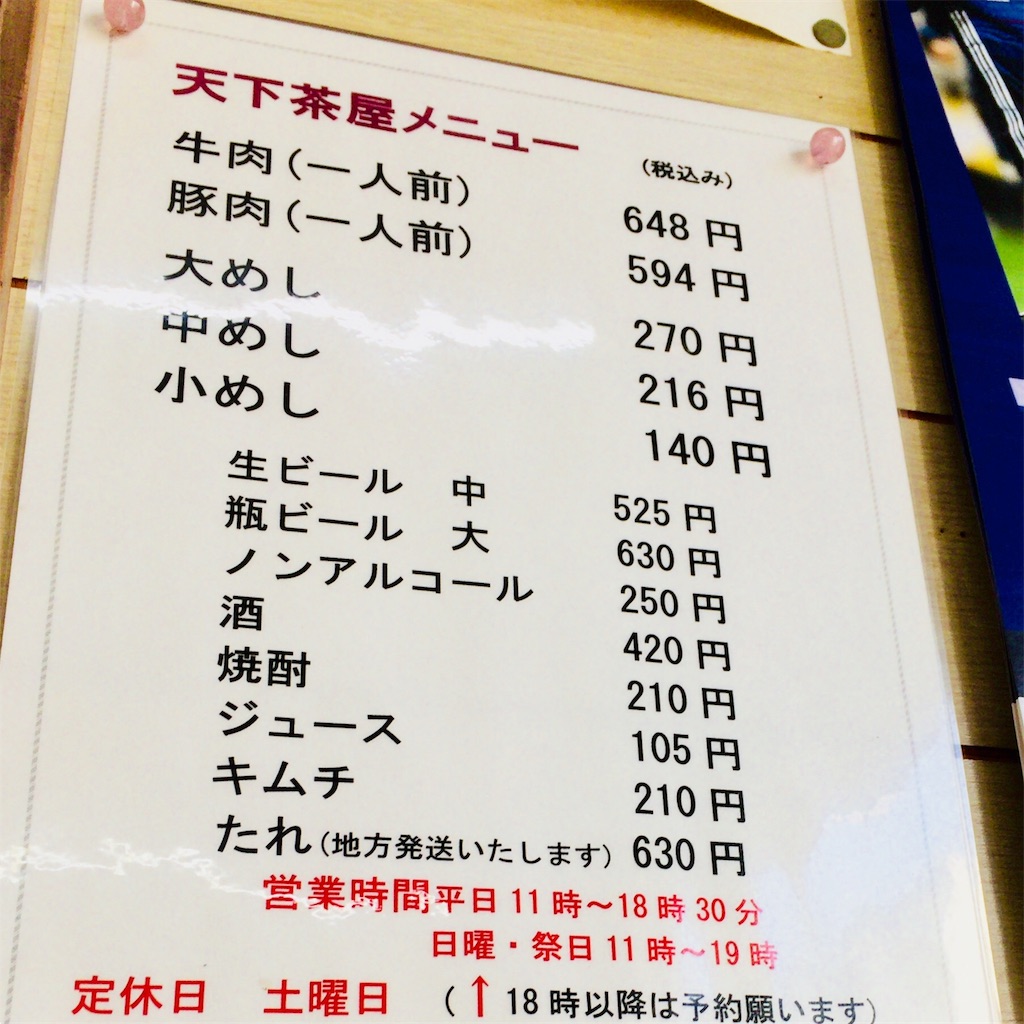 天下茶屋メニュー
(税込み)
牛肉(一人前) 648円
豚肉(一人前) 594円
大めし 270円
中めし 216円
小めし 140円
生ビール 中 525円
瓶ビール 大 630円
ノンアルコール 250円
酒 420円
焼酎 210円
ジュース 105円
キムチ 210円
たれ(地方発送いたします) 630円
営業時間平日11時～18時30分
日曜・祭日11時～19時
定休日 土曜日 (↑18時以降は予約願います)